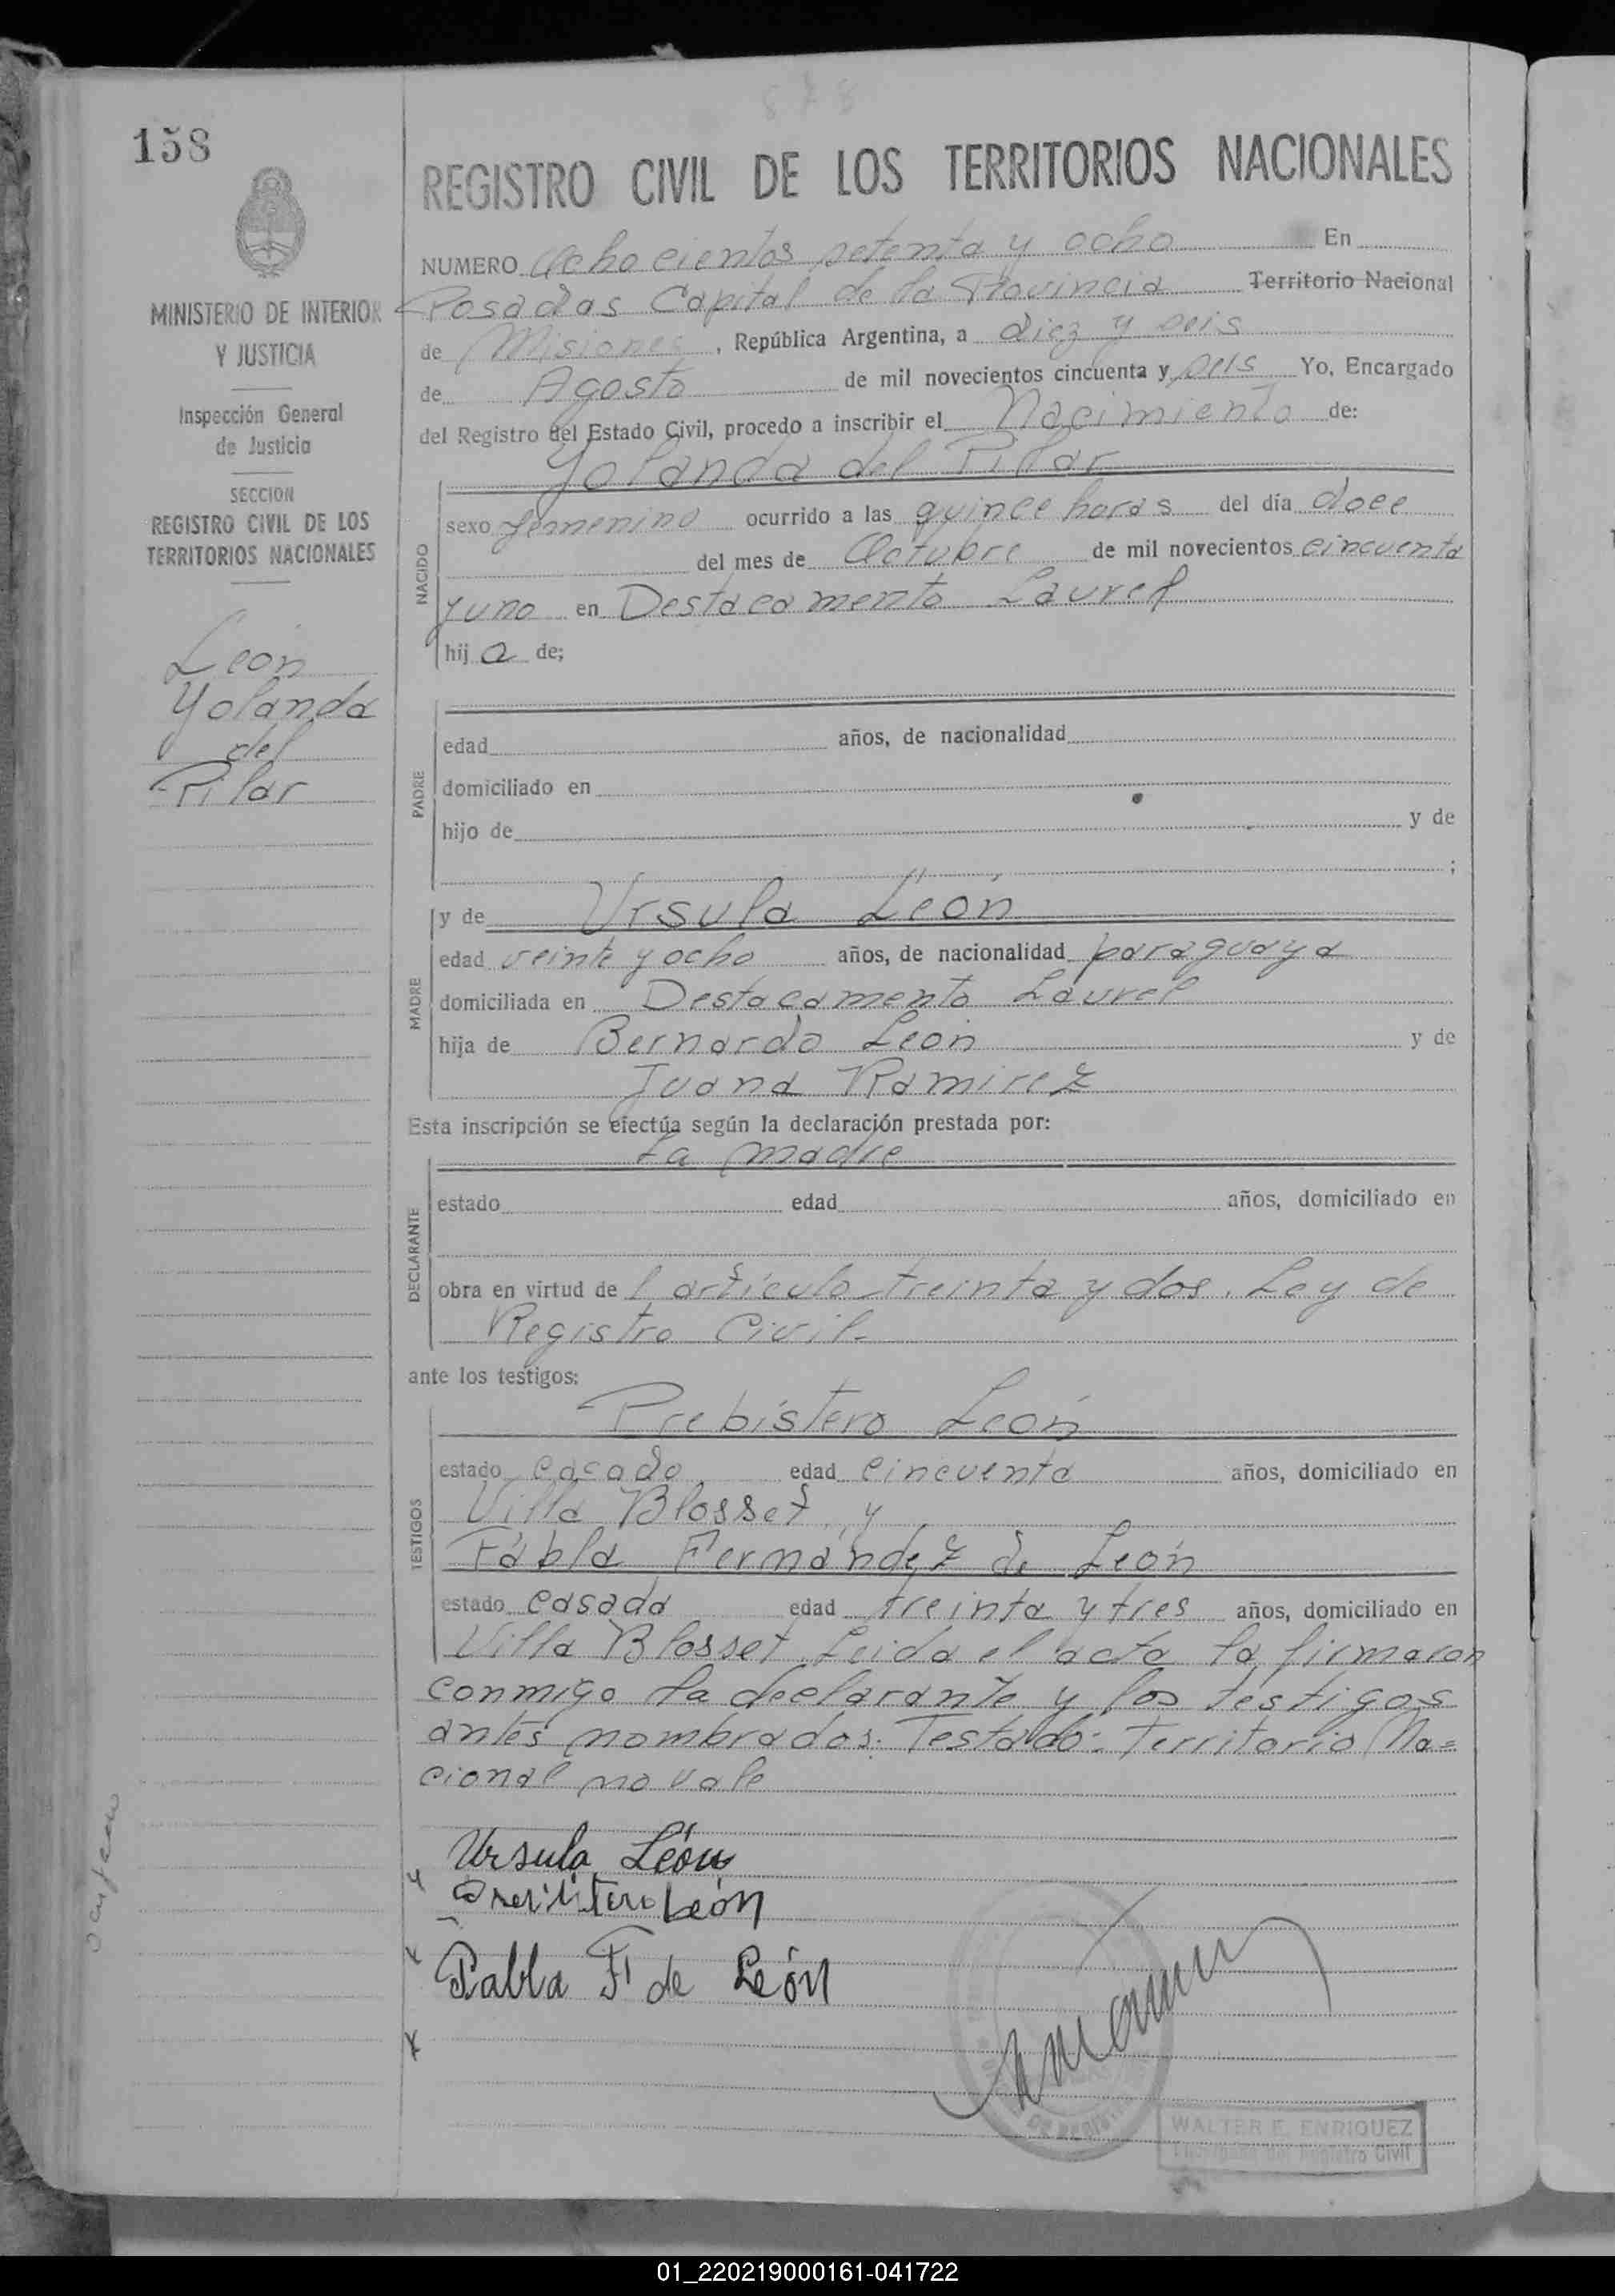 878
158
REGISTRO CIVIL DE LOS TERRITORIOS NACIONALES
NUMERO Ocho cientos setenta y ocho En
Posadas Capital de la Provincia Territorio Nacional
de Misiones, República Argentina, a diez y seis
de Agosto de mil novecientos cincuenta y seis Yo, Encargado
del Registro del Estado Civil, procedo a inscribir el Nacimiento de:
MINISTERIO DE INTERIOR
Y JUSTICIA
Inspección General
de Justicia
SECCION
REGISTRO CIVIL DE LOS
TERRITORIOS NACIONALES
León
Yolanda
del
Pilar
NACIDO
Yolanda del Pilar
sexo femenino ocurrido a las quince horas del día doce
del mes de Octubre de mil novecientos cincuenta
y uno en Destacamento Laurel
hija de;
PADRE
edad años, de nacionalidad
domiciliado en
hijo de y de
;
MADRE
y de Ursula León
edad veinte y ocho años, de nacionalidad paraguaya
domiciliada en Destacamento Laurel
hija de Bernardo León y de
Juana Ramirez
Esta inscripción se efectúa según la declaración prestada por:
DECLARANTE
La madre
estado edad años, domiciliado en
obra en virtud de l artículo treinta y dos. Ley de
Registro Civil.
ante los testigos:
TESTIGOS
Prebístero León
estado casado edad cincuenta años, domiciliado en
Villa Blosset, y
Pabla Fernández de León
estado casada edad treinta y tres años, domiciliado en
Villa Blosset. Leida el acta la firmaron
conmigo la declarante y los testigos
antes nombrados. Testado: Territorio Na=
cional no vale
Ursula León
León
Pabla F de León
WALTER E. ENRIQUEZ
Encargado del Registro Civil
01_220219000161-041722